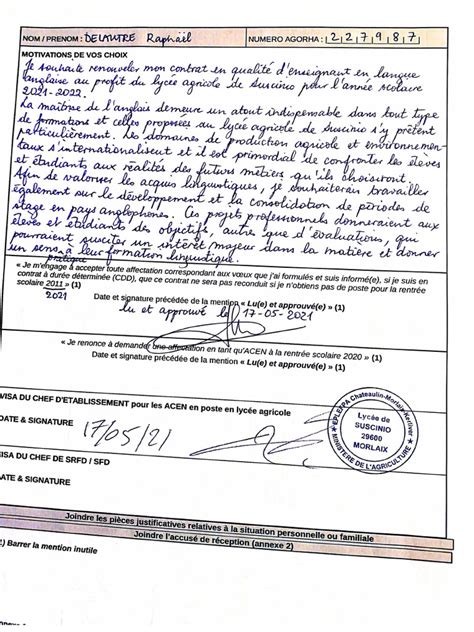 NOM / PRENOM : DELAUTRE Raphaël NUMERO AGORHA : | 2 | 2 | 7 | 9 | 8 | 7 |
MOTIVATIONS DE VOS CHOIX
Je souhaite renouveler mon contrat en qualité d'enseignant en langue
anglaise au profit du lycée agricole de Suscinio pour l'année scolaire
2021-2022.
La maîtrise de l'anglais demeure un atout indispensable dans tout type
de formations et celles proposées au lycée agricole de Suscinio s'y prêtent
particulièrement. Les domaines de production agricole et environnemen-
taux s'internationalisent et il est primordial de confronter les élèves
et étudiants aux réalités des futurs métiers qu'ils choisiront.
Afin de valoriser les acquis linguistiques, je souhaiterais travailler
également sur le développement et la consolidation de périodes de
stage en pays anglophones. Ces projets professionnels donneraient aux
élèves et étudiants des objectifs, autre que d'évaluations, qui
pourraient susciter un intérêt majeur dans la matière et donner
un sens pratique à leur formation linguistique.
« Je m'engage à accepter toute affectation correspondant aux vœux que j'ai formulés et suis informé(e), si je suis en
contrat à durée déterminée (CDD), que ce contrat ne sera pas reconduit si je n'obtiens pas de poste pour la rentrée
scolaire 2011 » (1)
2021
Date et signature précédée de la mention « Lu(e) et approuvé(e) » (1)
lu et approuvé le 17-05-2021
« Je renonce à demander une affectation en tant qu'ACEN à la rentrée scolaire 2020 » (1)
Date et signature précédée de la mention « Lu(e) et approuvé(e) » (1)
VISA DU CHEF D'ETABLISSEMENT pour les ACEN en poste en lycée agricole
DATE & SIGNATURE 17/05/21
EPLEFPA Chateaulin-Morlaix-Kerliver
Lycée de
SUSCINIO
29600
MORLAIX
MINISTERE DE L'AGRICULTURE
VISA DU CHEF DE SRFD / SFD
DATE & SIGNATURE
Joindre les pièces justificatives relatives à la situation personnelle ou familiale
Joindre l'accusé de réception (annexe 2)
1) Barrer la mention inutile